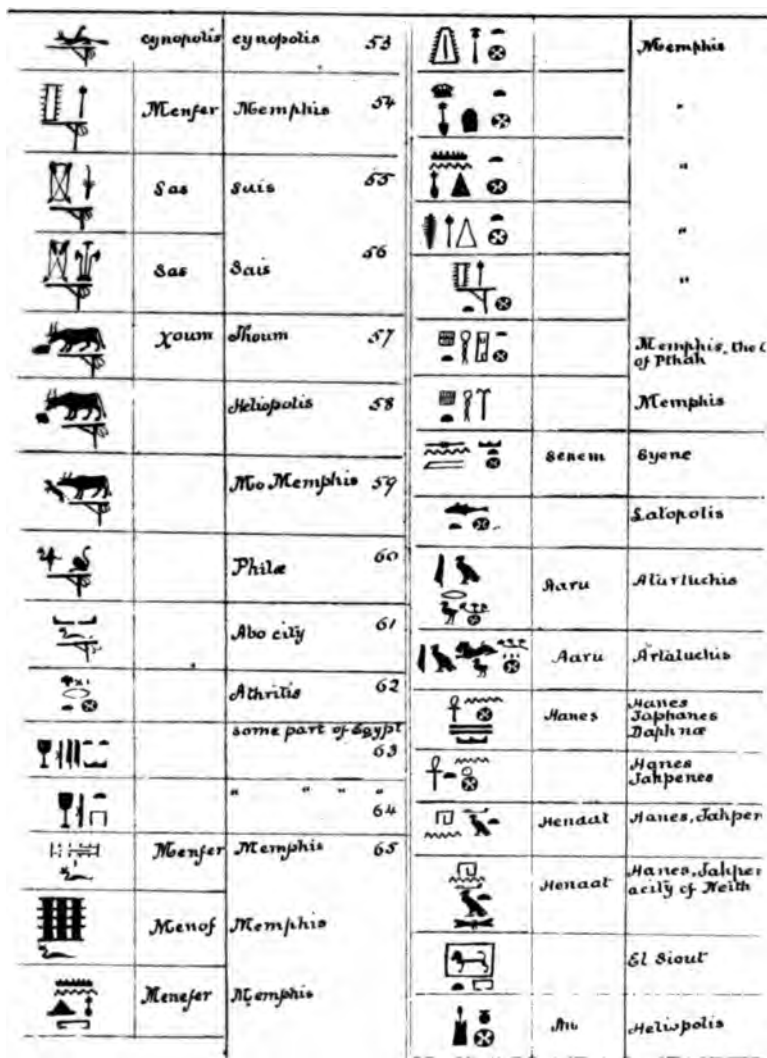 cynopolis cynopolis 53
Menfer Memphis 54
Sas Sais 55
Sas Sais 56
Χoum Thoum 57
Heliopolis 58
Mo Memphis 59
Philæ 60
Abo city 61
Athritis 62
some part of Egypt
63
" " " "
64
Menfer Memphis 65
Menof Memphis
Menefer Memphis
Memphis
"
"
"
"
Memphis, the
of Pthah
Memphis
Senem Syene
Latopolis
Aaru
Aaru
Hanes Hanes
Taphanes
Daphnæ
Hanes
Tahpenes
Hendat Hanes, Tahper
Henaat Hanes, Tahper
a city of Neith
El Siout
An Heliopolis